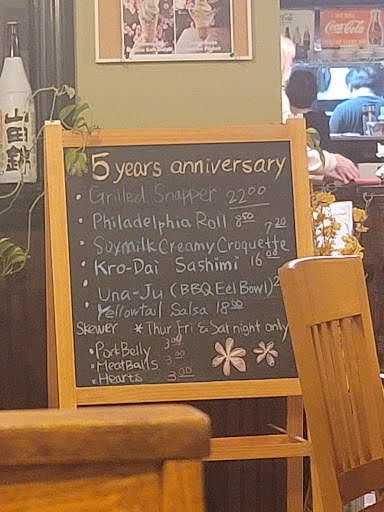 5 years anniversary
• Grilled Snapper 22.00
• Philadelphia Roll 8.50
• Soymilk Creamy Croquette 7.20
• Kro-Dai Sashimi 16.00
• Una-Ju (BBQ Eel Bowl) 2
• Yellowtail Salsa 18.50
Skewer * Thur Fri & Sat night only
• Pork Belly 3.00
• MeatBalls 3.00
• Hearts 3.00
Coca-Cola
Coca-Cola